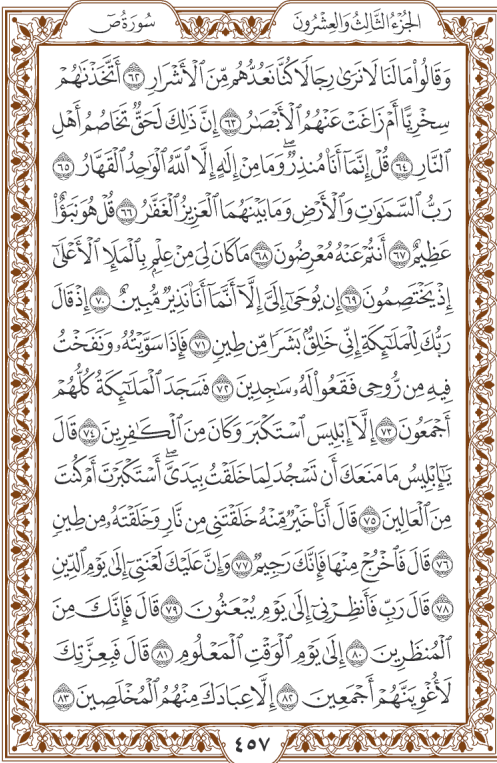 الجزء الثالث والعشرون
سورة ص
وَقَالُوا۟ مَا لَنَا لَا نَرَىٰ رِجَالًا كُنَّا نَعُدُّهُم مِّنَ ٱلْأَشْرَارِ ﴿٦٢﴾ أَتَّخَذْنَٰهُمْ
سِخْرِيًّا أَمْ زَاغَتْ عَنْهُمُ ٱلْأَبْصَٰرُ ﴿٦٣﴾ إِنَّ ذَٰلِكَ لَحَقٌّ تَخَاصُمُ أَهْلِ
ٱلنَّارِ ﴿٦٤﴾ قُلْ إِنَّمَآ أَنَا۠ مُنذِرٌ ۖ وَمَا مِنْ إِلَٰهٍ إِلَّا ٱللَّهُ ٱلْوَٰحِدُ ٱلْقَهَّارُ ﴿٦٥﴾
رَبُّ ٱلسَّمَٰوَٰتِ وَٱلْأَرْضِ وَمَا بَيْنَهُمَا ٱلْعَزِيزُ ٱلْغَفَّٰرُ ﴿٦٦﴾ قُلْ هُوَ نَبَؤٌا۟
عَظِيمٌ ﴿٦٧﴾ أَنتُمْ عَنْهُ مُعْرِضُونَ ﴿٦٨﴾ مَا كَانَ لِىَ مِنْ عِلْمٍۭ بِٱلْمَلَإِ ٱلْأَعْلَىٰٓ
إِذْ يَخْتَصِمُونَ ﴿٦٩﴾ إِن يُوحَىٰٓ إِلَىَّ إِلَّآ أَنَّمَآ أَنَا۠ نَذِيرٌ مُّبِينٌ ﴿٧٠﴾ إِذْ قَالَ
رَبُّكَ لِلْمَلَٰٓئِكَةِ إِنِّى خَٰلِقٌۢ بَشَرًا مِّن طِينٍ ﴿٧١﴾ فَإِذَا سَوَّيْتُهُۥ وَنَفَخْتُ
فِيهِ مِن رُّوحِى فَقَعُوا۟ لَهُۥ سَٰجِدِينَ ﴿٧٢﴾ فَسَجَدَ ٱلْمَلَٰٓئِكَةُ كُلُّهُمْ
أَجْمَعُونَ ﴿٧٣﴾ إِلَّآ إِبْلِيسَ ٱسْتَكْبَرَ وَكَانَ مِنَ ٱلْكَٰفِرِينَ ﴿٧٤﴾ قَالَ
يَٰٓإِبْلِيسُ مَا مَنَعَكَ أَن تَسْجُدَ لِمَا خَلَقْتُ بِيَدَىَّ ۖ أَسْتَكْبَرْتَ أَمْ كُنتَ
مِنَ ٱلْعَالِينَ ﴿٧٥﴾ قَالَ أَنَا۠ خَيْرٌ مِّنْهُ ۖ خَلَقْتَنِى مِن نَّارٍ وَخَلَقْتَهُۥ مِن طِينٍ
﴿٧٦﴾ قَالَ فَٱخْرُجْ مِنْهَا فَإِنَّكَ رَجِيمٌ ﴿٧٧﴾ وَإِنَّ عَلَيْكَ لَعْنَتِىٓ إِلَىٰ يَوْمِ ٱلدِّينِ
﴿٧٨﴾ قَالَ رَبِّ فَأَنظِرْنِىٓ إِلَىٰ يَوْمِ يُبْعَثُونَ ﴿٧٩﴾ قَالَ فَإِنَّكَ مِنَ
ٱلْمُنظَرِينَ ﴿٨٠﴾ إِلَىٰ يَوْمِ ٱلْوَقْتِ ٱلْمَعْلُومِ ﴿٨١﴾ قَالَ فَبِعِزَّتِكَ
لَأُغْوِيَنَّهُمْ أَجْمَعِينَ ﴿٨٢﴾ إِلَّا عِبَادَكَ مِنْهُمُ ٱلْمُخْلَصِينَ ﴿٨٣﴾
٤٥٧